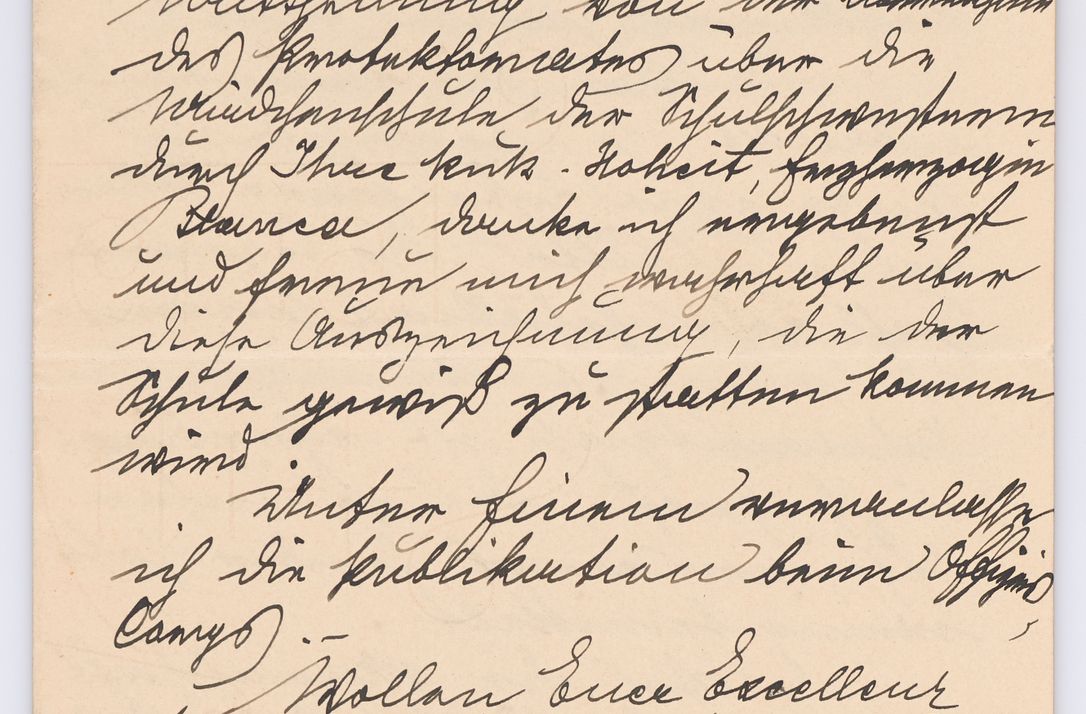 Mittheilung von der
des Protektorates über die
Mädchenschule der Schulschwestern
durch Ihre kuk. Hoheit, Erzherzogin
Blanca, danke ich ergebenst
und freue mich wahrhaft über
diese Auszeichnung, die der
Schule gewiß zu statten kommen
wird.
Unter Einem veranlasse
ich die Publikation beim Offiziers
Corps.
Wollen Euer Excellenz